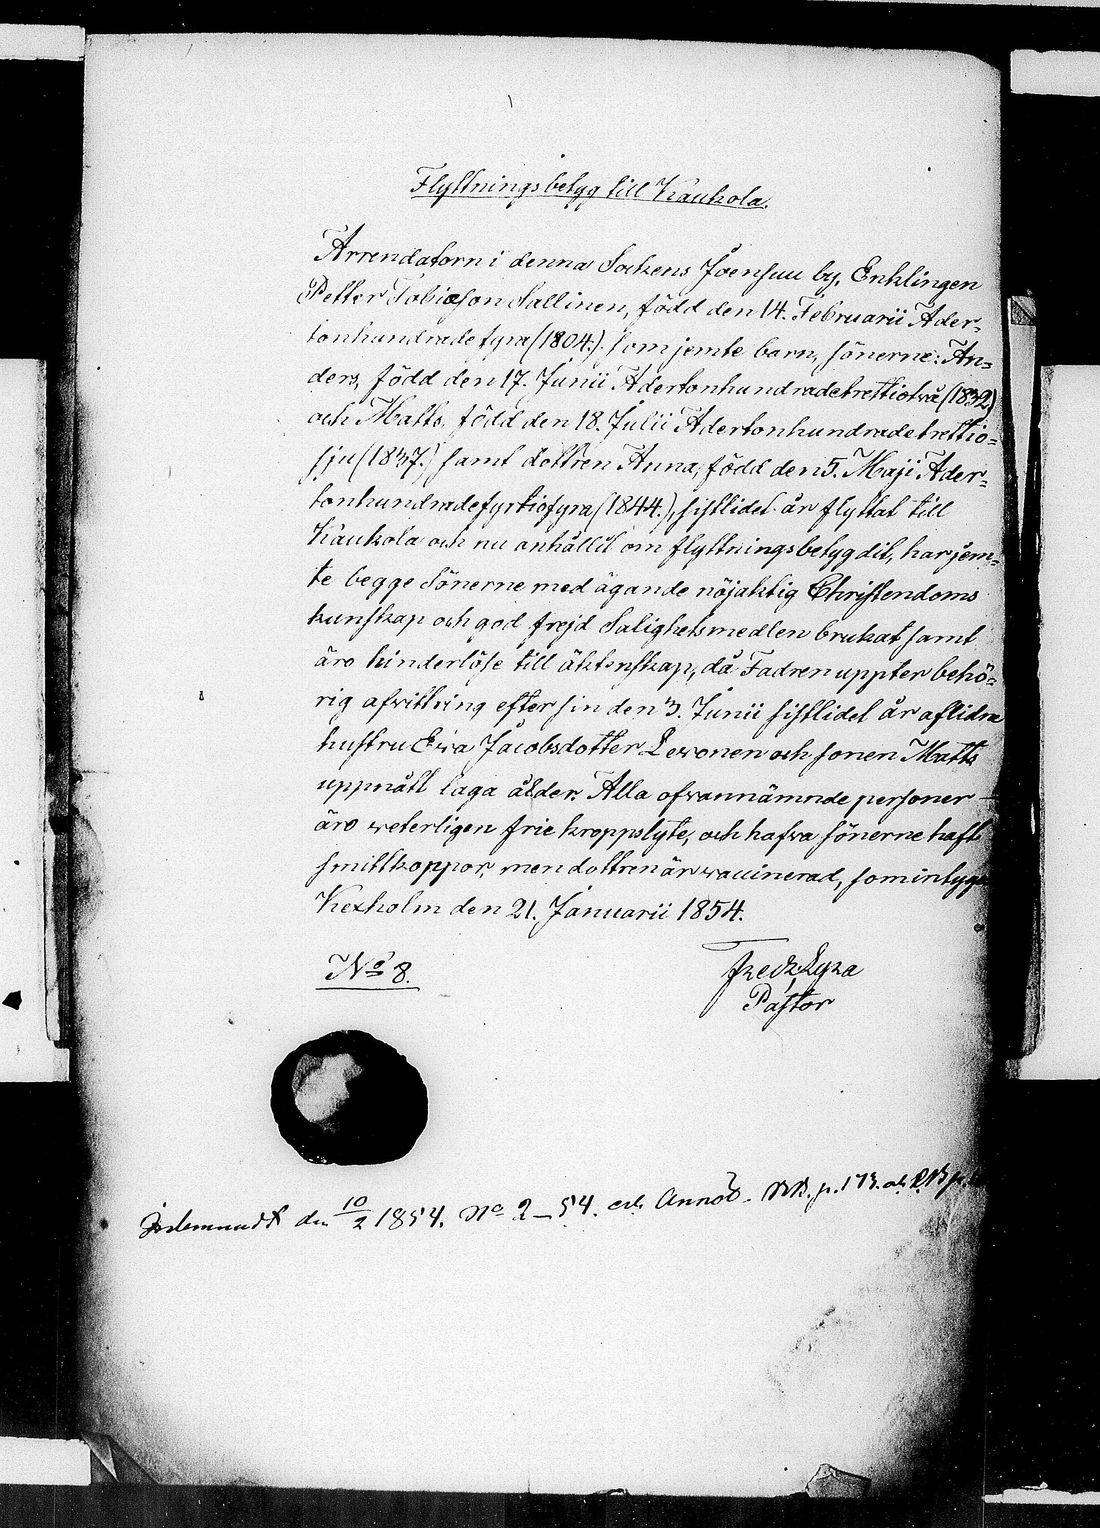 Flyttningsbetyg till Kaukola.
Arrendatorn i denna Sockens Joensuu by, Enklingen
Petter Tobiasson Sallinen, född den 14. Februarii Ader-
tonhundradefyra (1804.) som jemte barn, sönerne: An-
ders, född den 17. Junii Adertonhundradetrettiotvå (1832)
och Matts, född den 18. Julii Adertonhundradetrettio-
sju (1837.) samt dottren Anna, född den 5. Maji Ader-
tonhundradefyrtiofyra (1844.), sistlidet år flyttat till
Kaukola och nu anhållit om flyttningsbetyg dit, har jem-
te begge Sönerne med ägande nöjaktig Christendoms
kunskap och god frejd Salighetsmedlen brukat samt
äro hinderlöse till äktenskap, då Fadren uppter behö-
rig afwittring efter sin den 3. Junii sistlidet år aflidna
hustru Ewa Jacobsdotter Lewonen och sonen Matts
uppnått laga ålder. Alla ofvannämnde personer
äro weterligen frie kroppslyte, och hafva sönerne haft
smittkoppor, men dottren är waccinerad, som intygas
Kexholm den 21. Januarii 1854.
No 8.
Fredr. Lyra
Pastor
den 10/2 1854. No 2-54. och Annot. p. 173. och